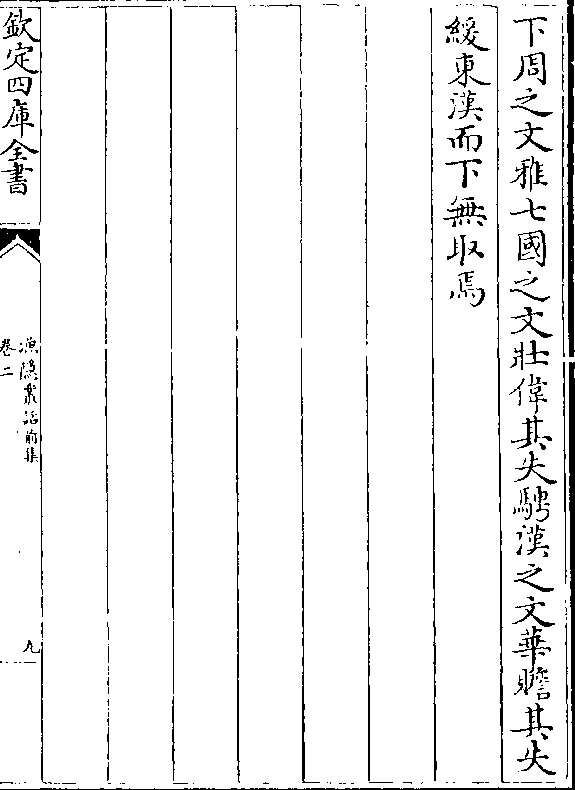 下周之文雅七國之文壯偉其失騁漢之文華贍其失
緩東漢而下無取焉
欽定四庫全書
漁隱叢話前集
卷二
九